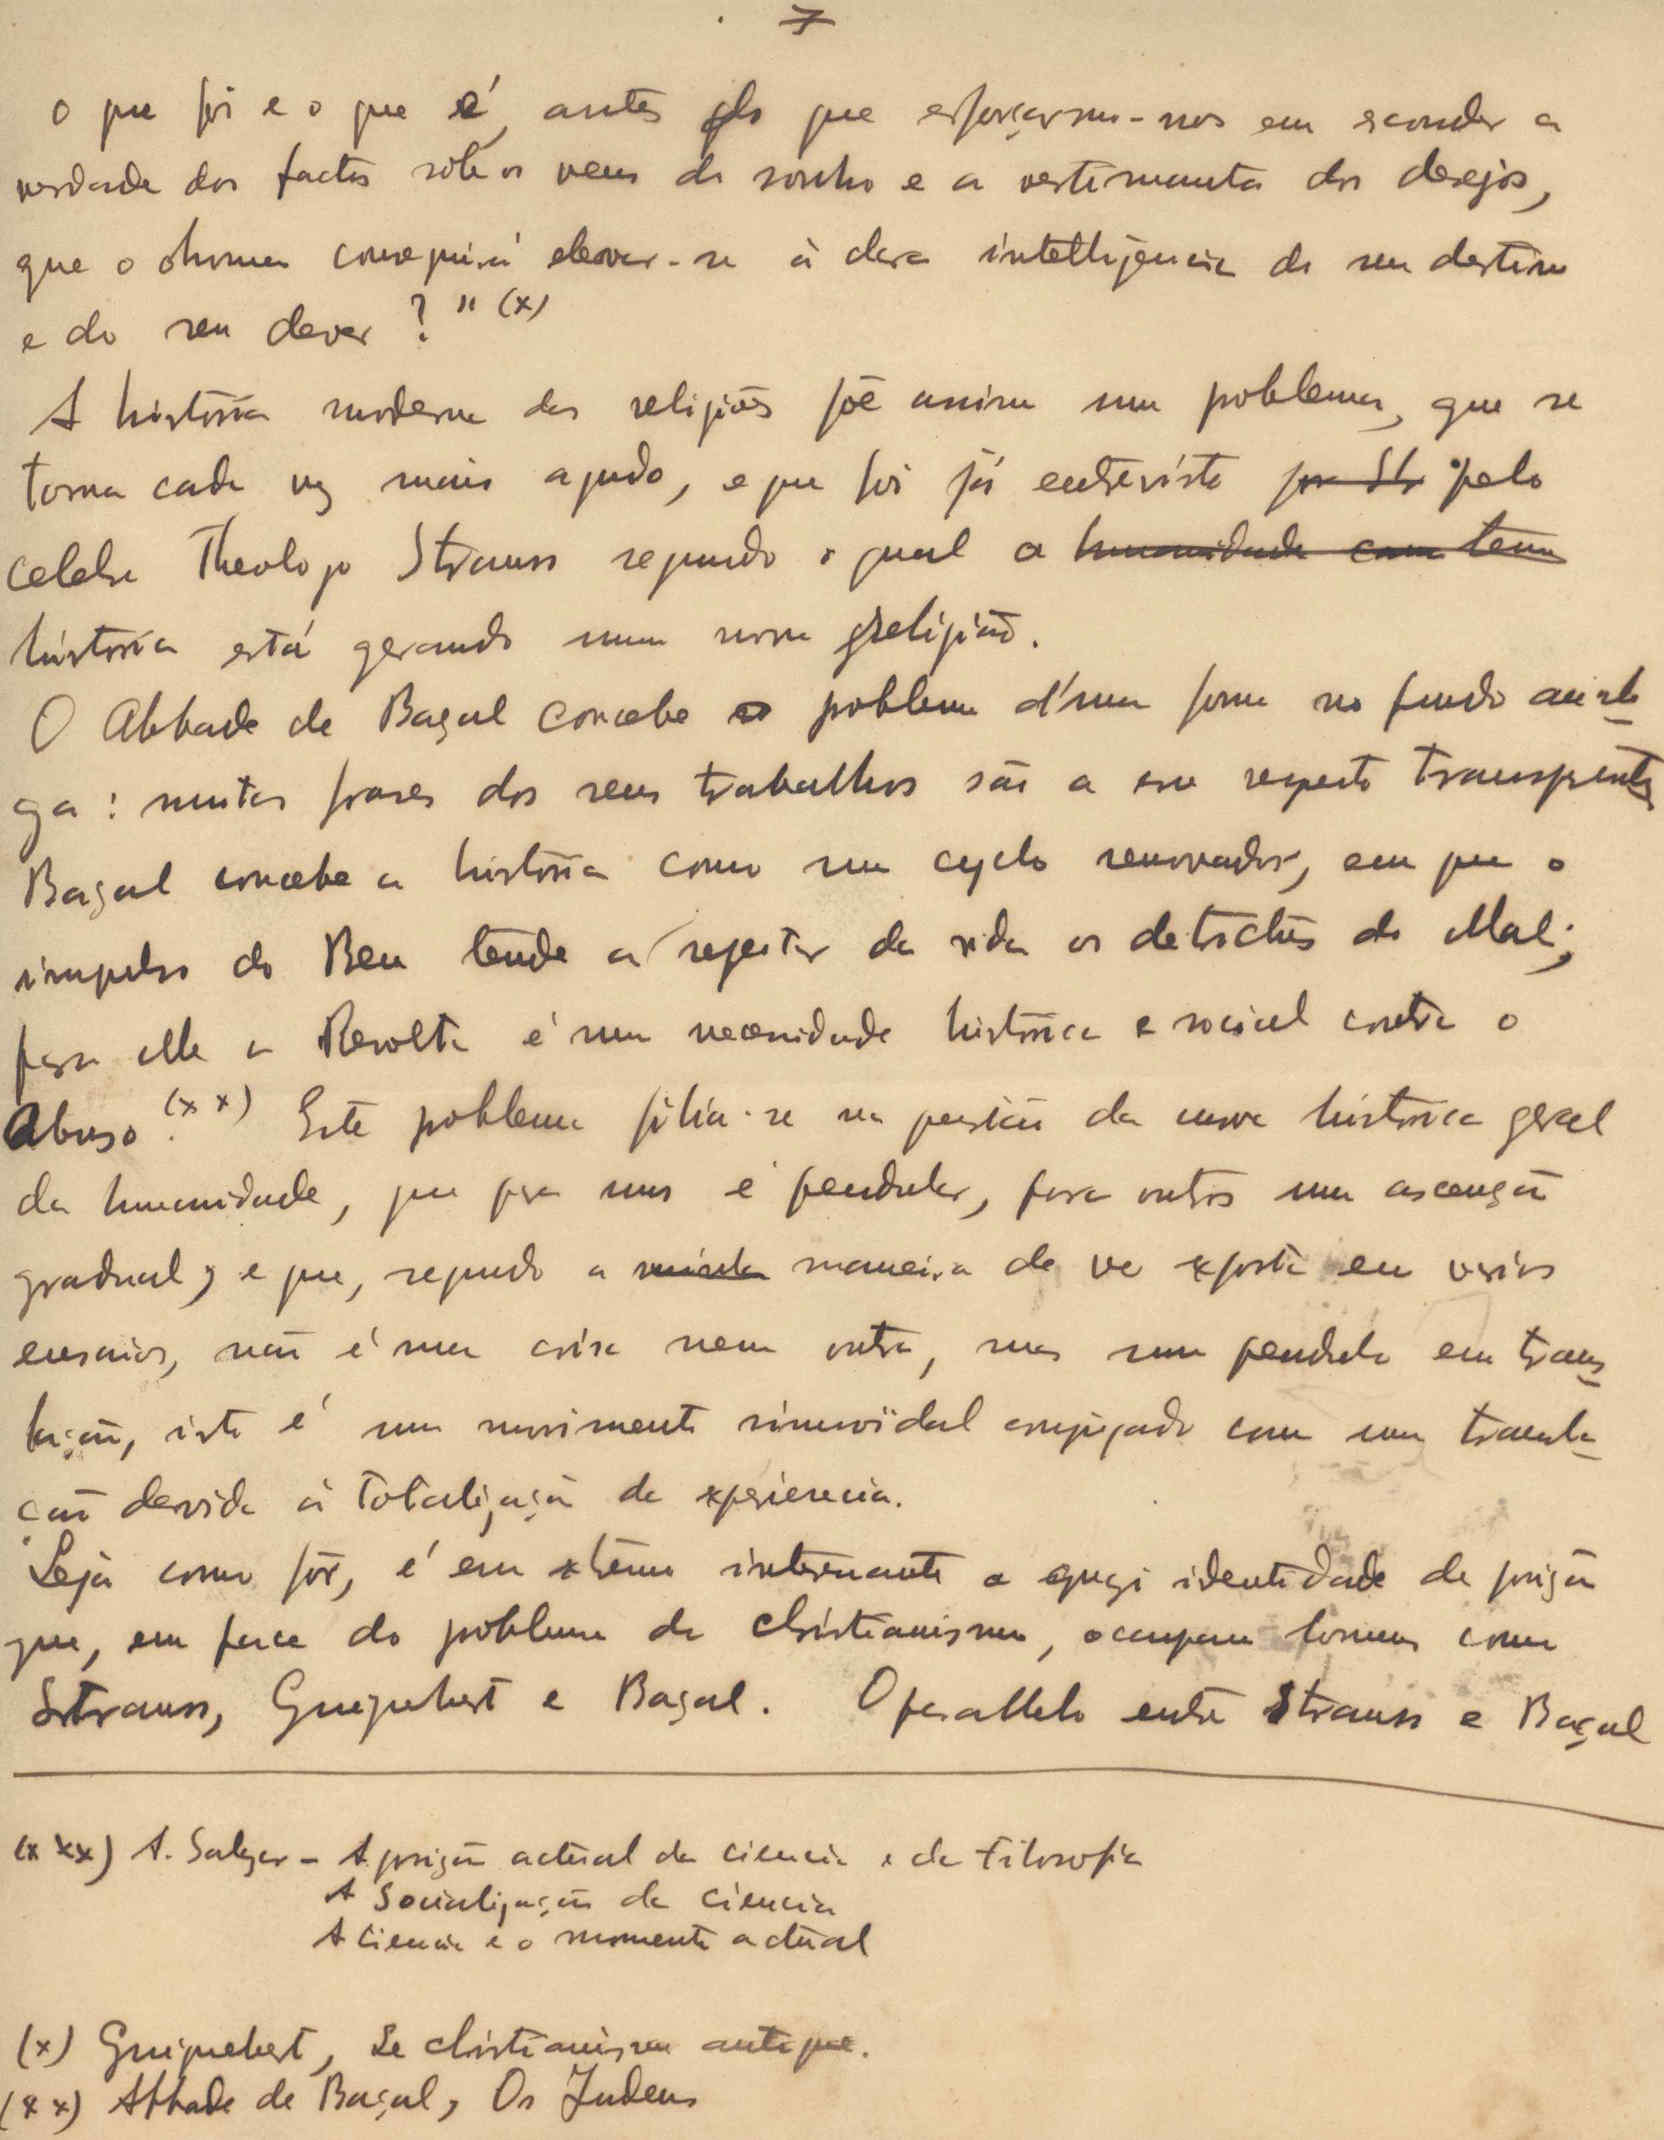 7
o que foi e o que é, antes do que esforçarmo-nos em esconder a
verdade dos factos sôb os veus do sonho e a vestimenta dos desejos,
que o homem conseguirá elevar-se á clara intelligencia do seu destino
e do seu dever?" (x)
A história moderna das religiões põe assim um problema, que se
torna cada vez mais agudo, e que foi já entrevisto por Str pelo
celebre Theologo Strauss segundo o qual a humanidade com tem
história está gerando uma nova religião.
O Abbade de Baçal concebe o problema d'uma forma no fundo analo-
ga: muitas frases dos seus trabalhos são a esse respeito transparentes
Baçal concebe a história como um cyclo renovador, em que o
impulso do Bem tende a rejeitar da vida os detrictus do Mal;
para elle a Revolta é uma necessidade histórica e social contra o
Abuso.(xx) Este problema filia-se na questão da curva histórica geral
da humanidade, que para uns é pendular, para outros uma ascenção
gradual, e que, segundo a minha maneira de ver exposta em varios
ensaios, não é uma coisa nem outra, mas um pendulo em trans-
lação, isto é um movimento sinusoïdal conjugado com uma transla-
ção devida á totalização da experiencia.
Seja como fôr, é em extremo interessante a quazi identidade de posição
que, em face do problema do christianismo, occupam homens como
Strauss, Guignebert e Baçal. O parallelo entre Strauss e Baçal
(xxx) A. Salazar - A posição actual da ciencia e da Filosofia
A Socialização da Ciencia
A Ciencia e o momento actual
(x) Guignebert, Le christianisme antique.
(xx) Abbade de Baçal, Os Judeus